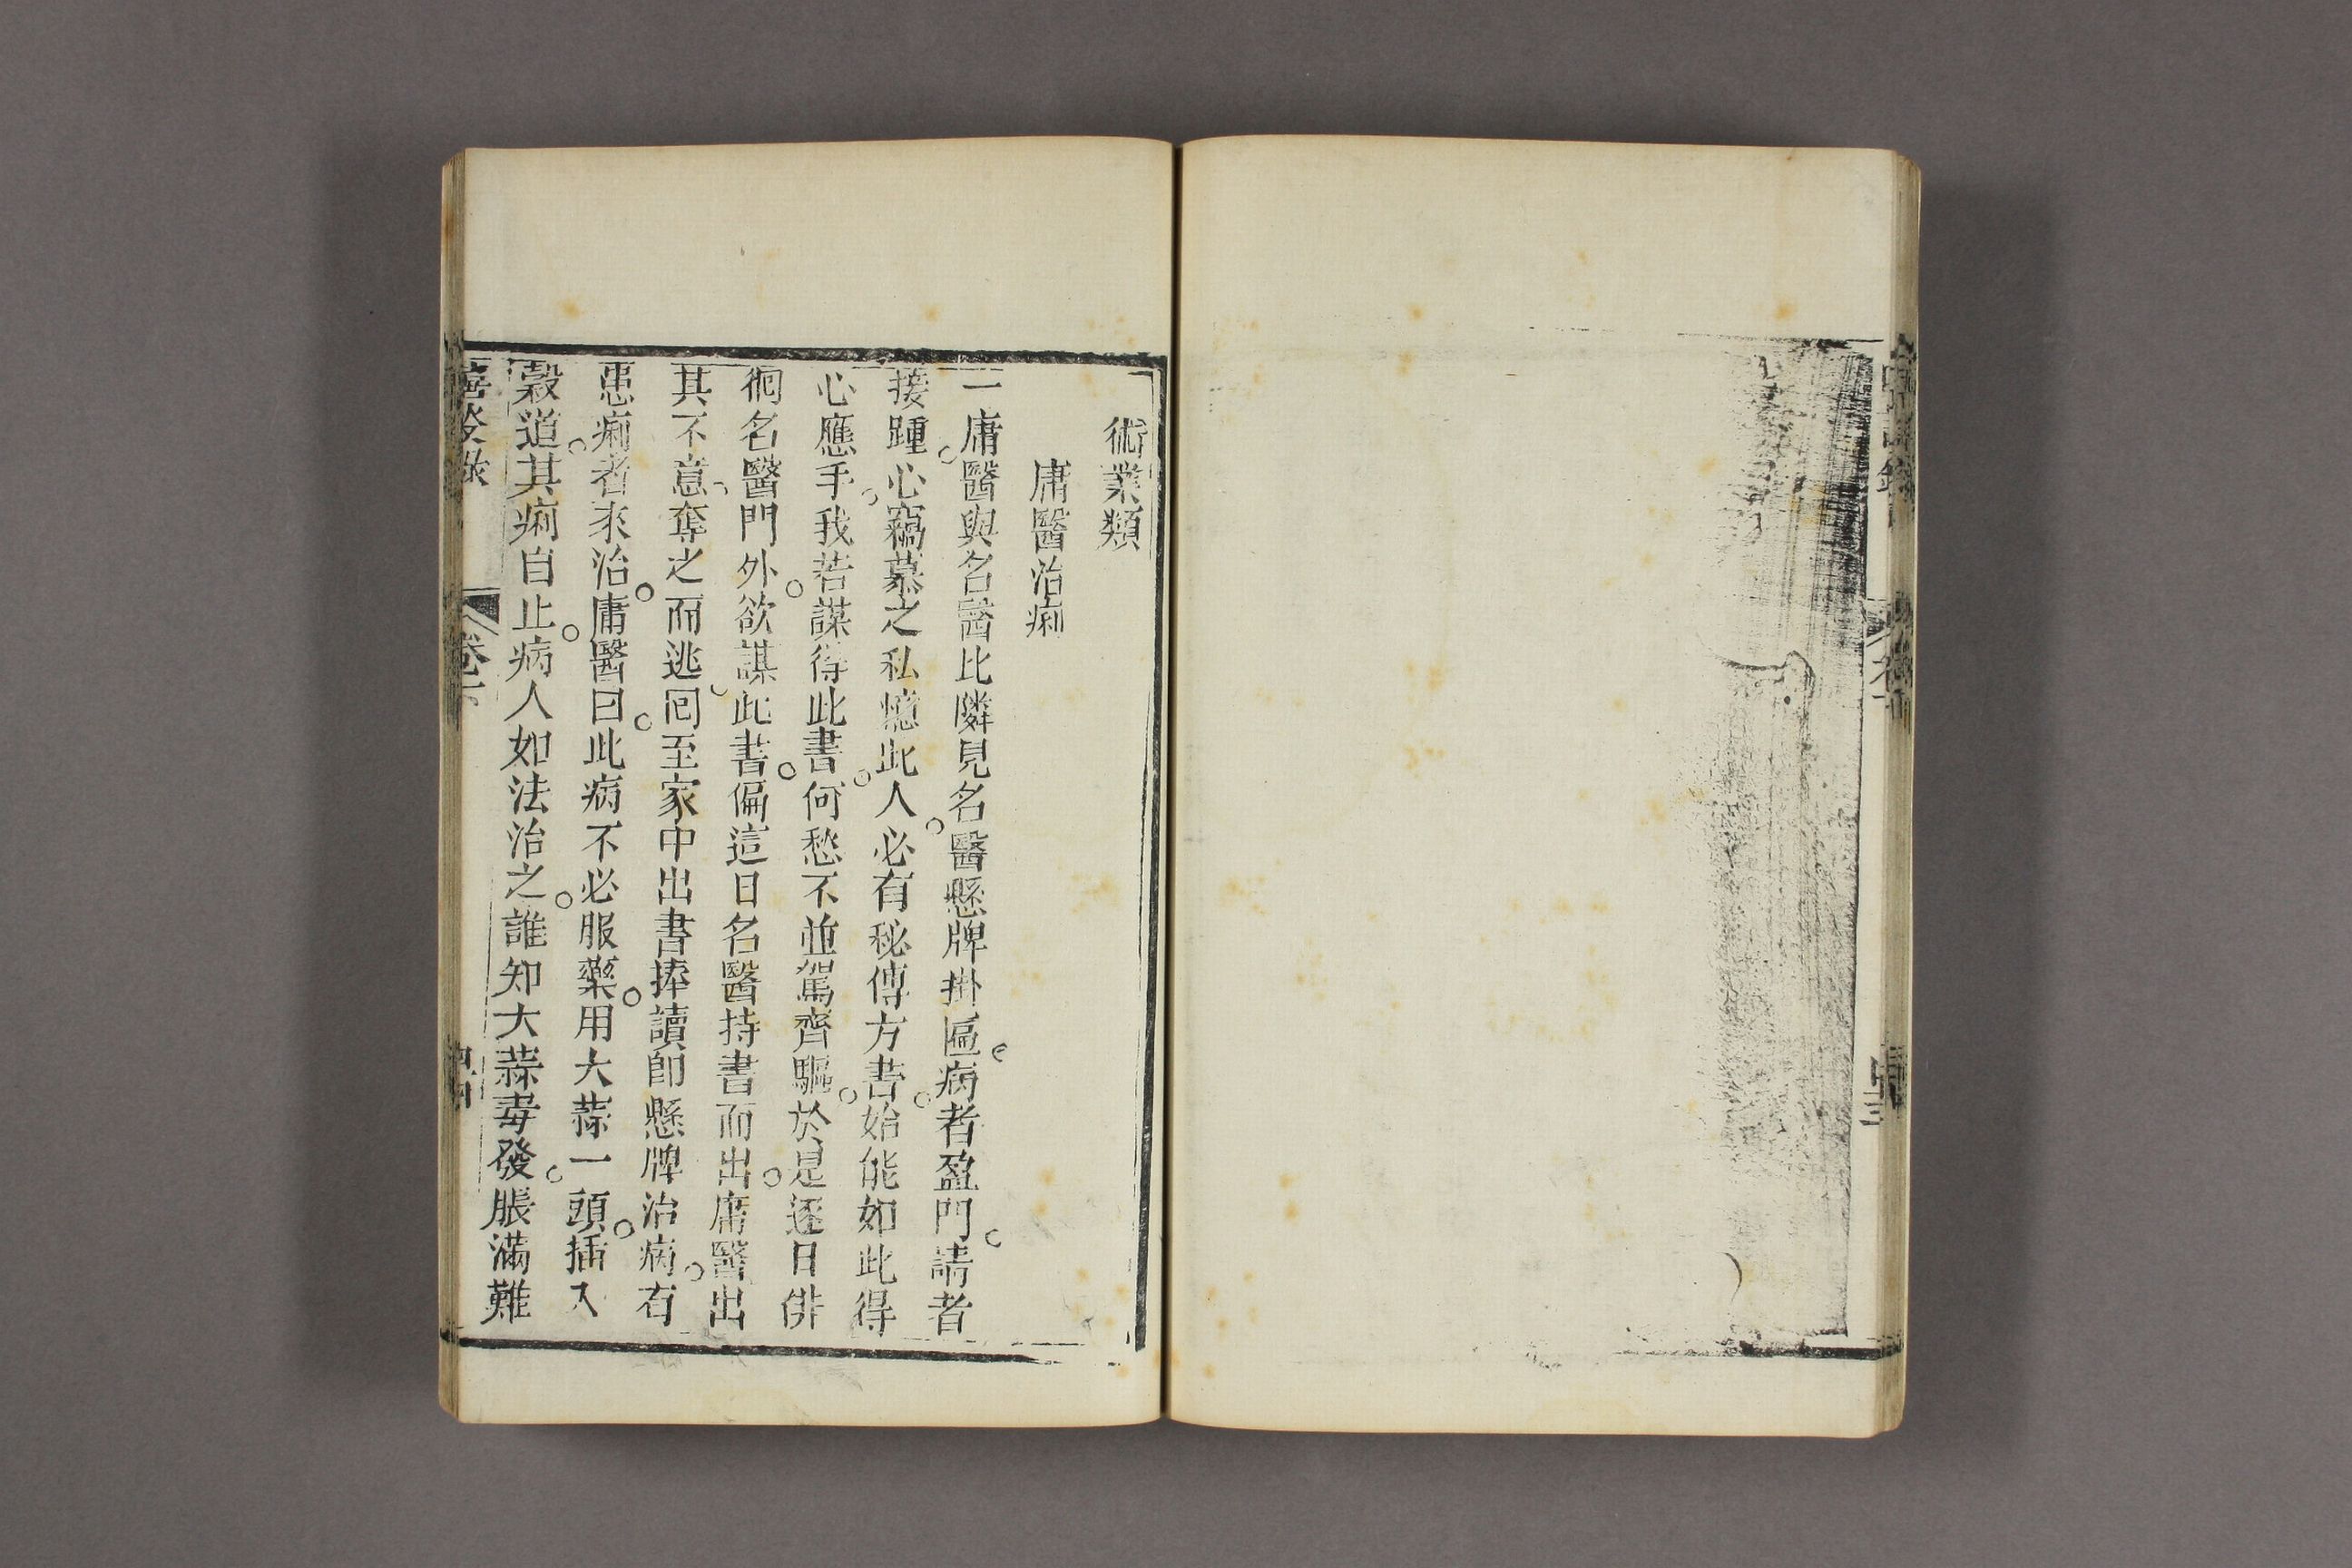 術業類
庸醫治痢
一庸醫與名醫比隣見名醫懸牌掛匾病者盈門請者
接踵心竊慕之私憶此人必有秘傳方書始能如此得
心應手我若謀得此書何愁不並駕齊驅於是逐日徘
徊名醫門外欲謀此書偏這日名醫持書而出庸醫出
其不意奪之而逃回至家中出書捧讀即懸牌治病有
患痢者來治庸醫曰此病不必服藥用大蒜一頭插入
穀道其痢自止病人如法治之誰知大蒜毒發脹滿難
卷下